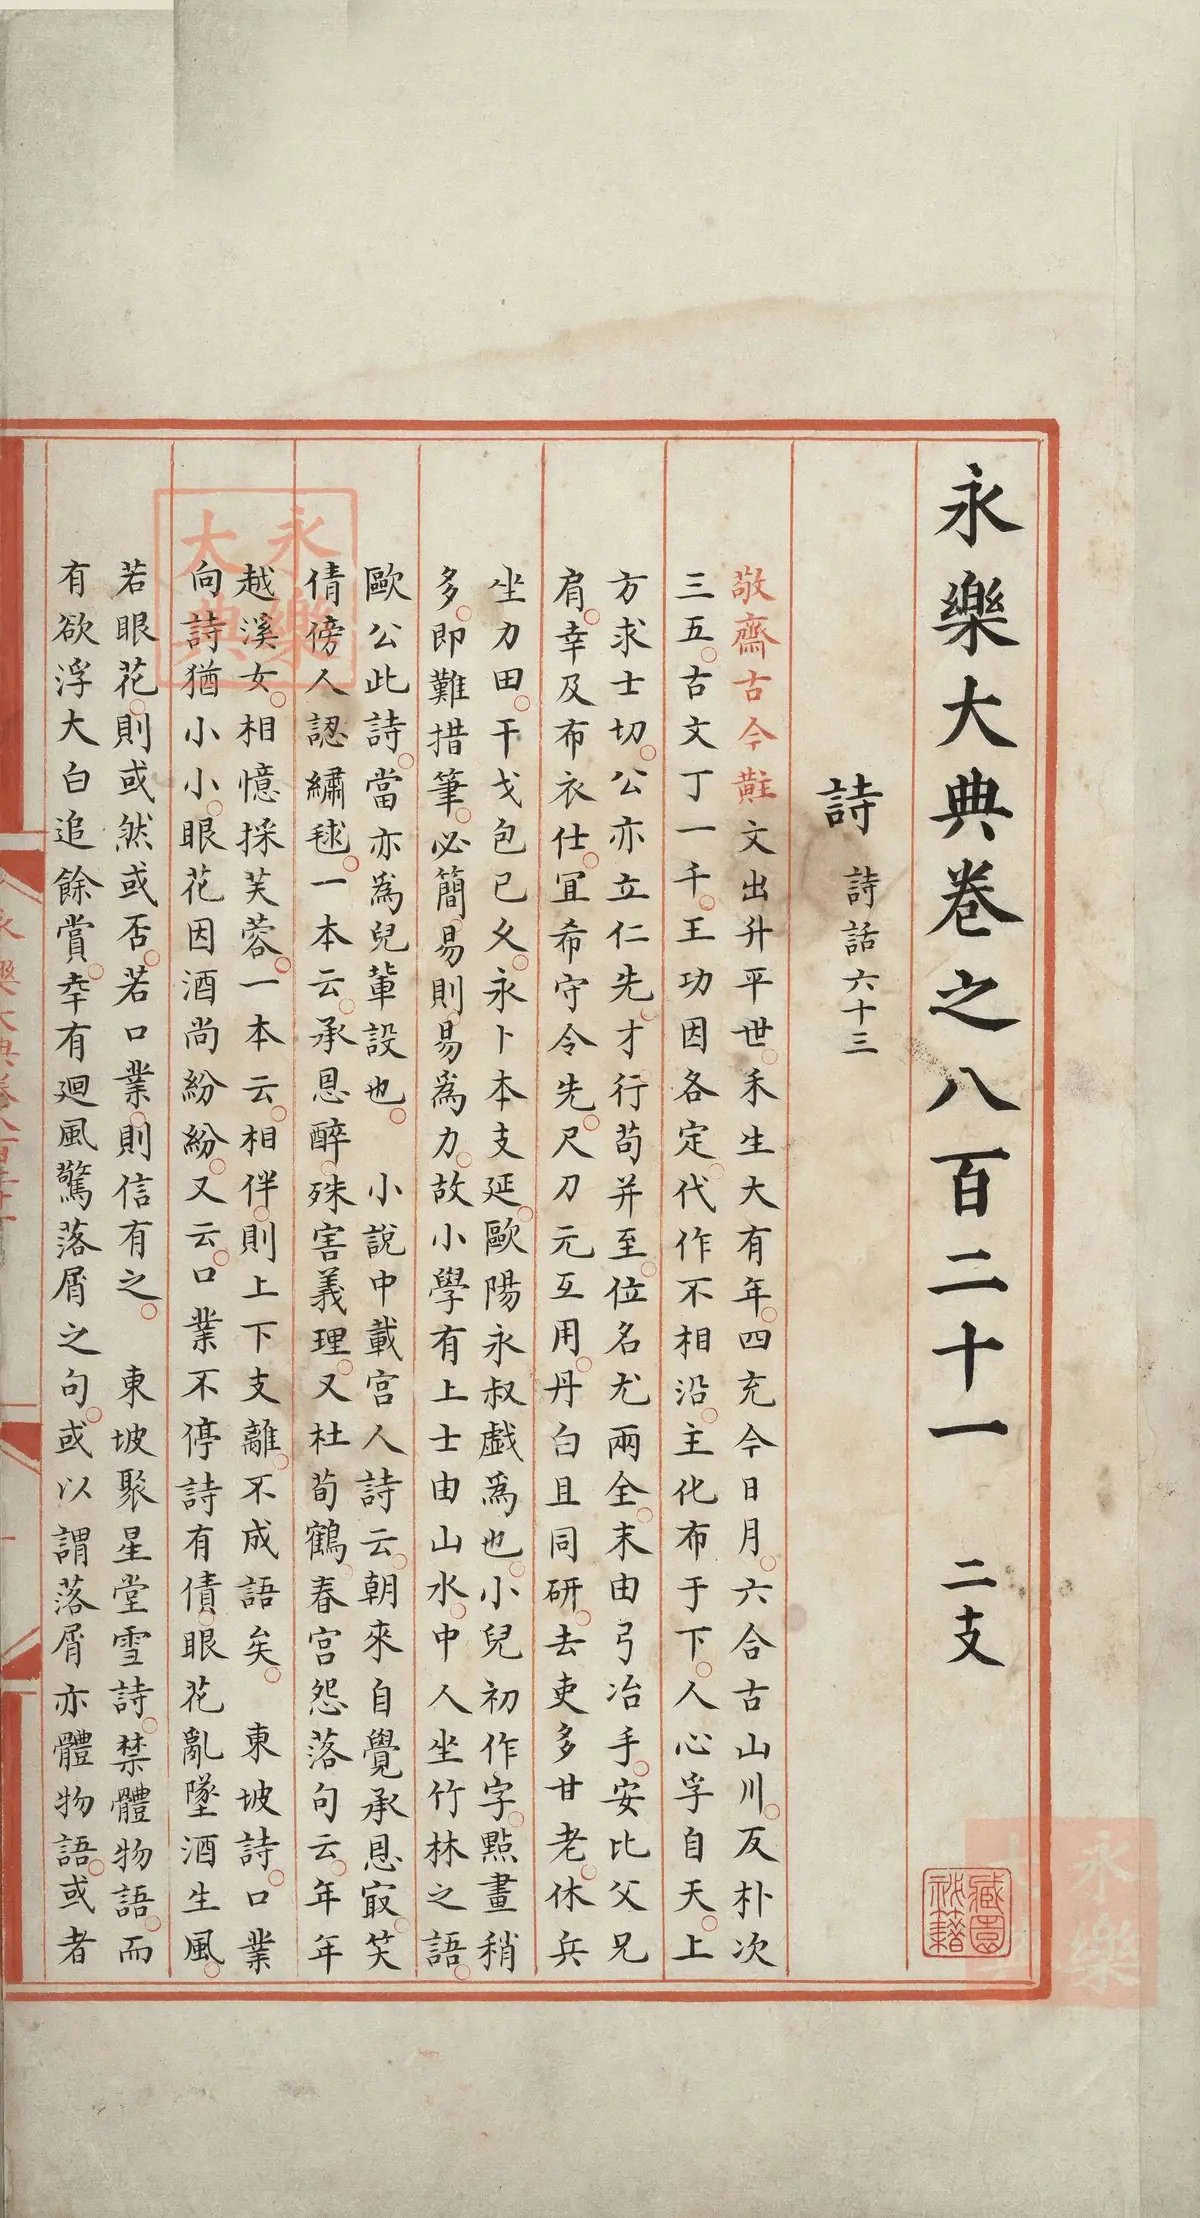 永樂大典卷之八百二十一 二支
詩 詩話六十三
敬齋古今黈文出升平世禾生大有年四充今日月六合古山川反朴次
三五古文丁一千王功因各定代作不相沿主化布于下人心孚自天上
方求士切公亦立仁先才行苟并至位名尤兩全末由弓冶手安比父兄
肩幸及布衣仕冝希守令先尺刀元互用丹白且同研去吏多甘老休兵
坐力田干戈包已久永卜本支延歐陽永叔戲爲也小兒初作字點畫稍
多即難措筆必簡易則易爲力故小學有上士由山水中人坐竹林之語
歐公此詩當亦爲兒軰設也 小說中載宫人詩云朝來自覺承恩㝡笑
倩傍人認繡毬一本云承恩醉殊害義理又杜荀鶴春宫怨落句云年年
越溪女相憶採芙蓉一本云相伴則上下支離不成語矣 東坡詩口業
向詩猶小小眼花因酒尚紛紛又云口業不停詩有債眼花亂墜酒生風
若眼花則或然或否若口業則信有之 東坡聚星堂雪詩禁體物語而
有欲浮大白追餘賞幸有廻風驚落屑之句或以謂落屑亦體物語或者
永樂大典
藏園秘籍
永樂